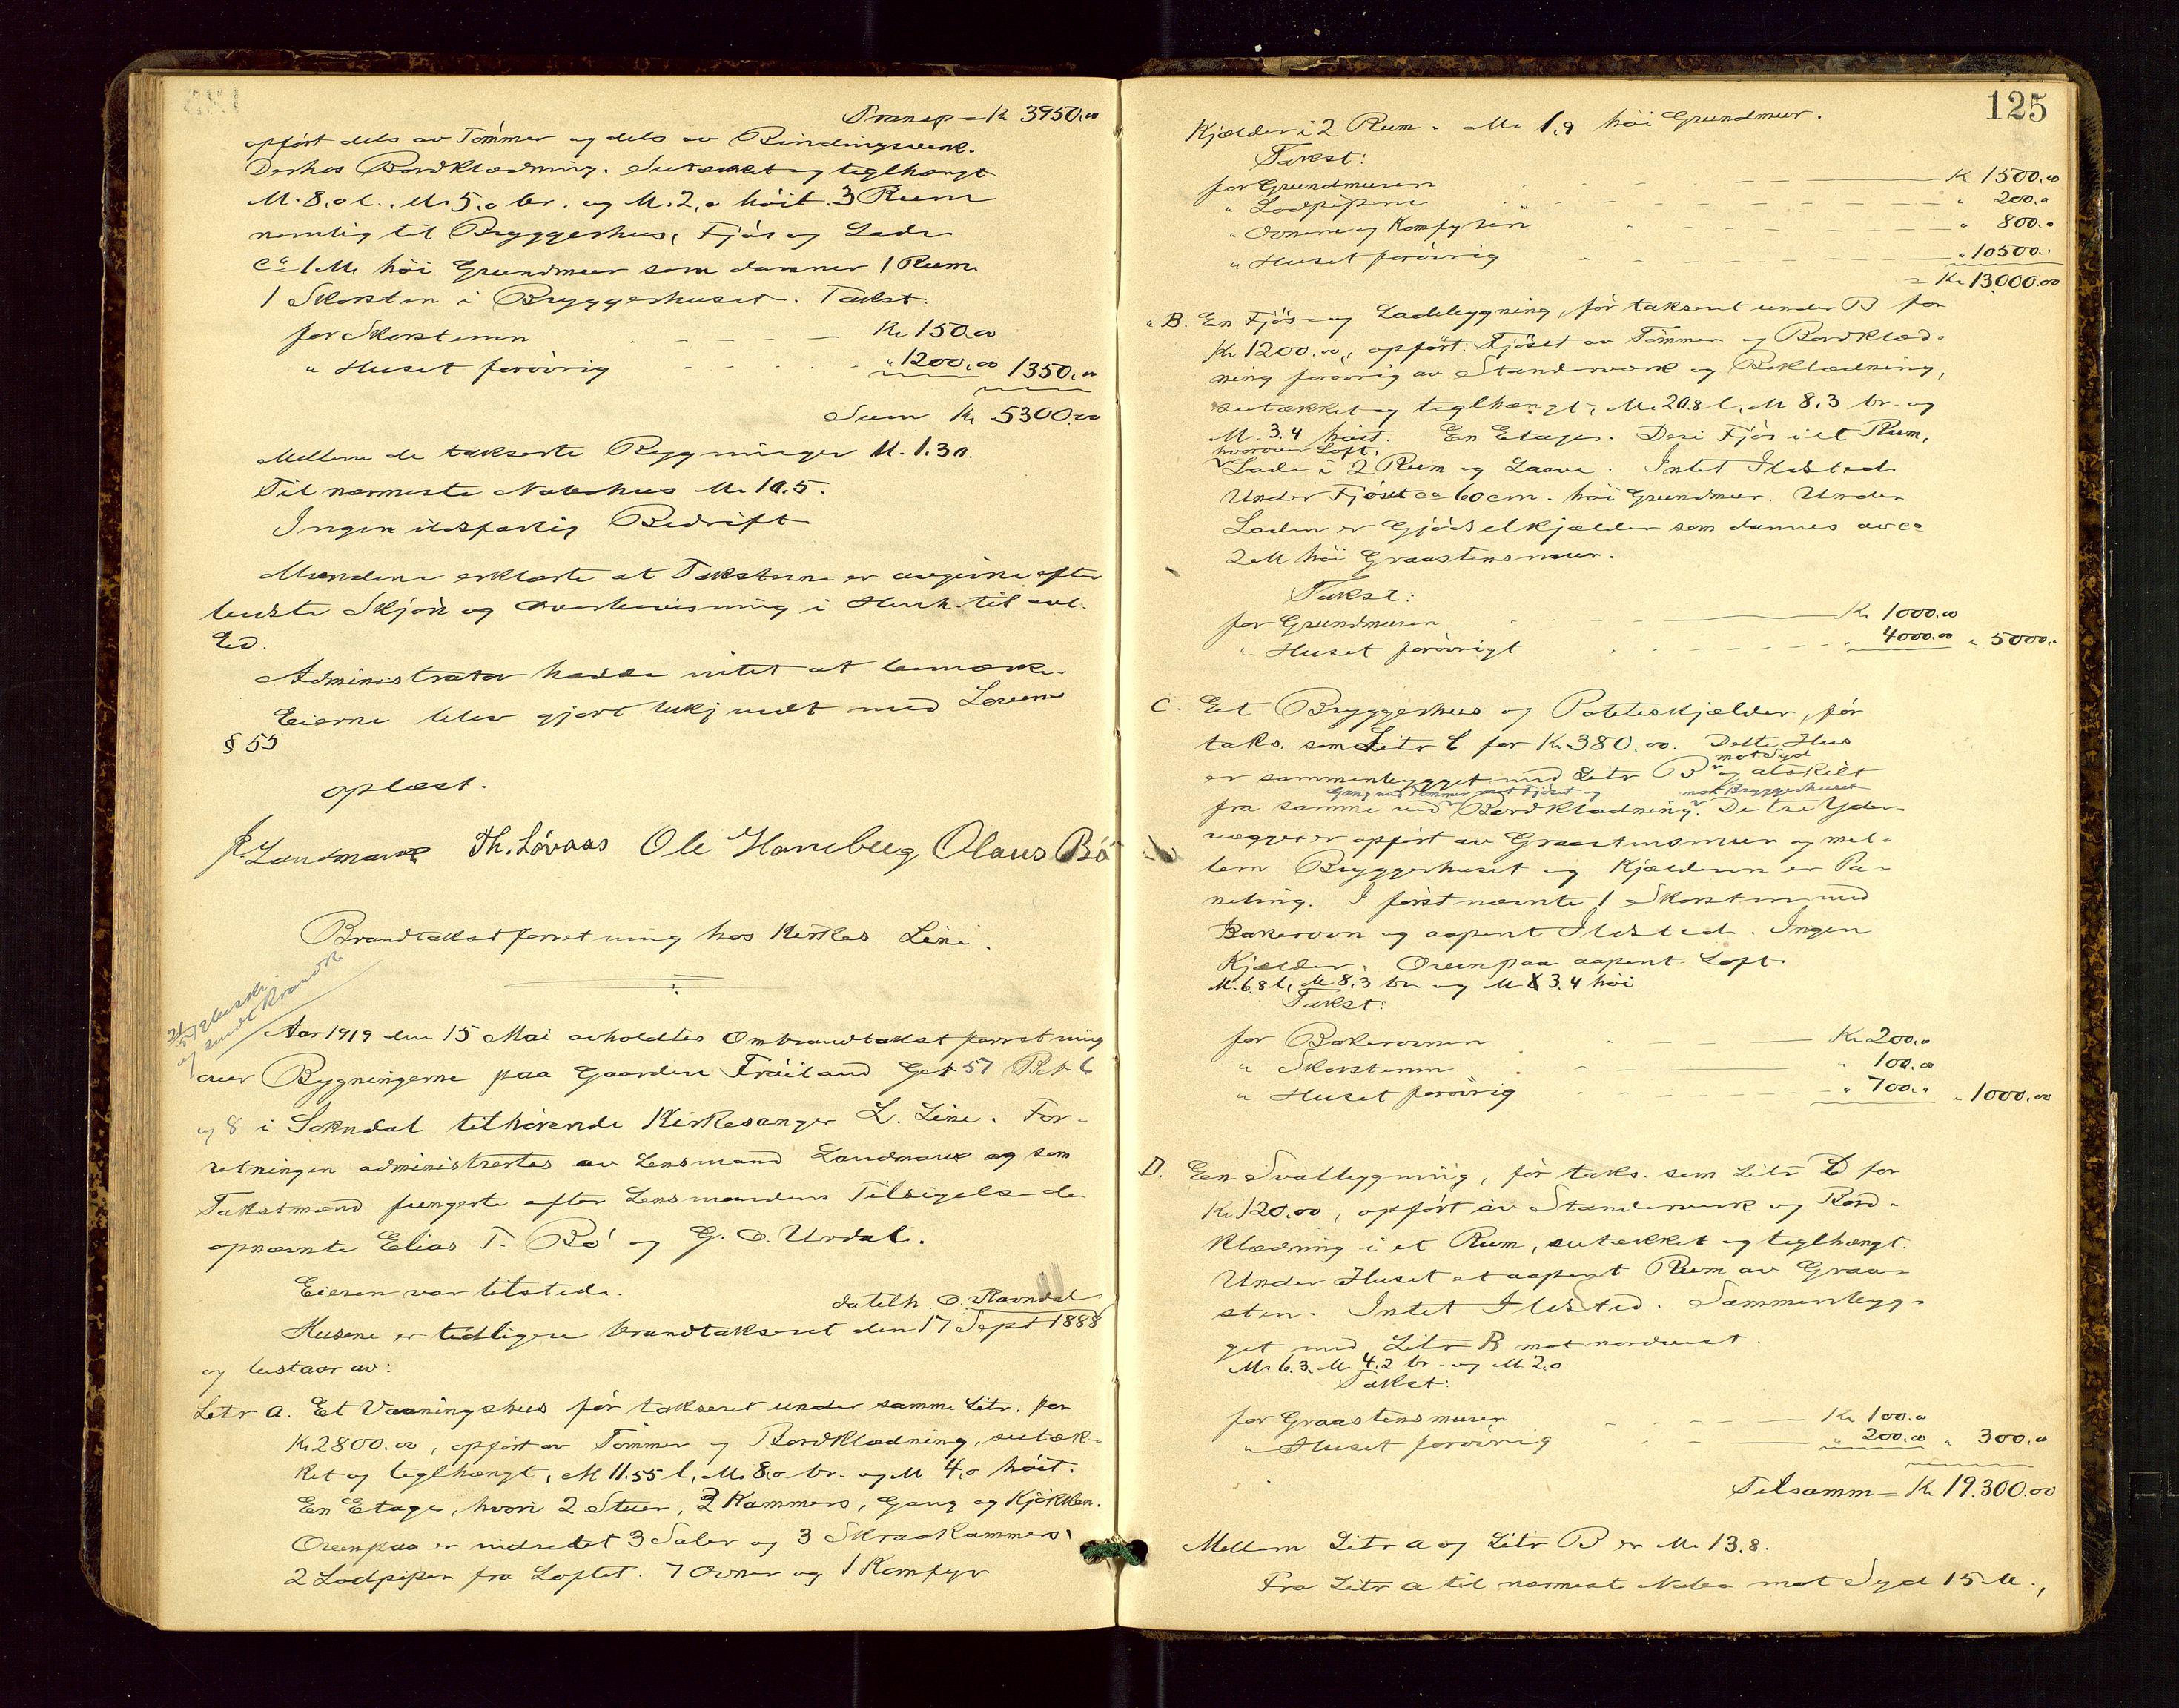 Transp - Kr 3950,00
opført dels av Tømmer og dels av Bindingsverk.
Derhos Bordklædning. Sutækket og teglhængt
M. 8,0 l., M. 5,0 br. og M. 2,0 höit. 3 Rum
nemlig til Bryggerhus, Fjös og Lade
ca 1 M. höi Grundmur som danner 1 Rum
1 Skorsten i Bryggerhuset. Takst.
for Skorstenen Kr 150,00
" Huset forövrig " 1200,00 1350,00
Sum Kr 5300,00
Mellem de takserte Bygninger M. 1.30.
Til nærmeste Nabohus M. 10.5.
Ingen ildsfarlig Bedrift
Mændene erklærte at Taksterne er avgivne efter
bedste Skjön og Overbevisning i Henh. til avl.
Ed.
Administrator hadde intet at bemærke.
Eierne blev gjort bekjendt med Lovens
§ 55
oplæst.
Landmark Th. Lövaas Ole Haneberg Olaus Bö
Brandtakstforretning hos Kirkes. Line.
Aar 1919 den 15 Mai avholdtes Ombrandtakstforretning
over Bygningerne paa Gaarden Fröiland Gnr 57 Bnr 6
og 8 i Sokndal tilhörende Kirkesanger L. Line. For-
retningen administrertes av Lensmand Landmark og som
Takstmænd fungerte efter Lensmandens Tilsigelse de
opnævnte Elias T. Bö og G. O. Urdal.
Eieren var tilstede.
da tilh. O. Ravndal
Husene er tidligere brandtakseret den 17 Sept 1888
og bestaar av:
Litr a. Et Vaaningshus för takseret under samme Litr. for
Kr 2800.00, opført av Tømmer og Bordklædning, sutæk-
ket og teglhængt, M 11.55 l, M. 8,0 br. og M 4,0 höit.
En Etage, hvori 2 Stuer, 2 Kammers, Gang og Kjökken.
Ovenpaa er indredet 3 Saler og 3 Skraakammers.
2 Lodpiper fra Loftet. 7 Ovner og 1 Komfyr
125
Kjælder i 2 Rum. M. 1,9 höi Grundmur.
Takst:
for Grundmuren Kr 1500,00
" Lodpiperne " 200,0
" Ovnene og Komfyren " 800,0
" Huset forövrig " 10500.-
= Kr 13000.00
" B. En Fjös- og Ladebygning, för takseret under B for
Kr 1200.00, opført: Fjöset av Tömmer og Bordklæd-
ning forövrig av Standerværk og Beklædning,
sutækket og teglhængt, M. 20.8 l, M 8.3 br. og
M. 3.4 höit. En Etage. Deri Fjös i et Rum,
hvorover Loft,
Lade i 2 Rum og Laave. Intet Ildsted
Under Fjöset ca 60 cm. höi Grundmur. Under
Laden er Gjödselkjælder som dannes av ca
2 M höi Graastensmur.
Takst:
for Grundmuren Kr 1000.00
" Huset forövrigt " 4000.00 " 5000.-
C. Et Bryggerhus og Poteteskjælder, för
taks. som Litr C for Kr 380.00. Dette Hus
mot Syd
er sammenbygget med Litr B og atskilt
Gang med Tömmer mot Fjöset og mot Bryggerhuset
fra samme med Bordklædning. De tre Yder-
vægger er opført av Graastensmur og mel-
lem Bryggerhuset og Kjælderen er Pa-
neling. I förstnævnte 1 Skorsten med
Bakerovn og aapent Ildsted. Ingen
Kjælder. Ovenpaa aapent Loft
M. 6.8 l, M 8,3 br og M 3.4 höi
Takst:
for Bakerovnen Kr 200,0
" Skorstenen " 100.00
" Huset forövrig " 700.0 " 1000.00
D. En Svalbygning, för taks. som Litr D for
Kr 120.00, opført av Standerverk og Bord-
klædning i et Rum, sutækket og teglhængt.
Under Huset et aapent Rum av Graa-
sten. Intet Ildsted. Sammenbyg-
get med Litr B mot nordvest.
M. 6.3. M. 4.2 br. og M 2,0
Takst:
for Graastensmuren Kr 100.0
" Huset forövrig " 200.00 " 300,0
Tilsamm = Kr 19.300.00
Mellem Litr a og Litr B er M. 13.8.
Fra Litr a til nærmest Nabo mot Syd 15 M.,